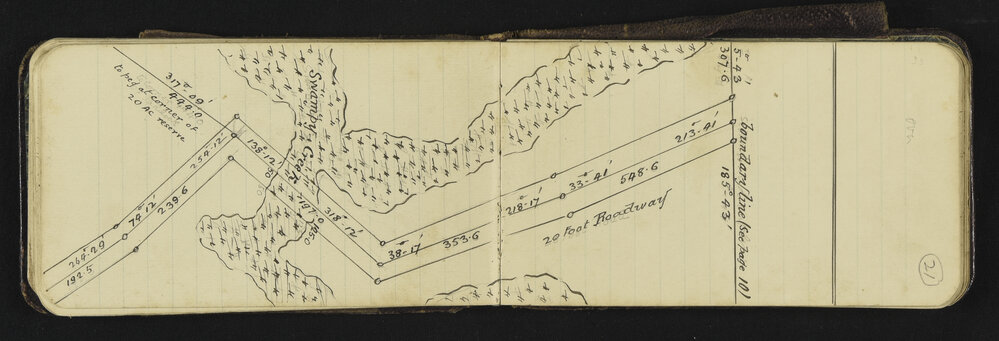 317°-09'
444.0
to peg at corner of
20 AC reserve
Swampy Creek
138-12'
254-12'
74°-12'
239.6
264°-29
192.5
318°-12'
38°-17'
353.6
218-17'
33°-41'
548.6
213°-41'
20 foot Roadway
5-43
307.6
boundary line (See page 10)
185°-43'
21